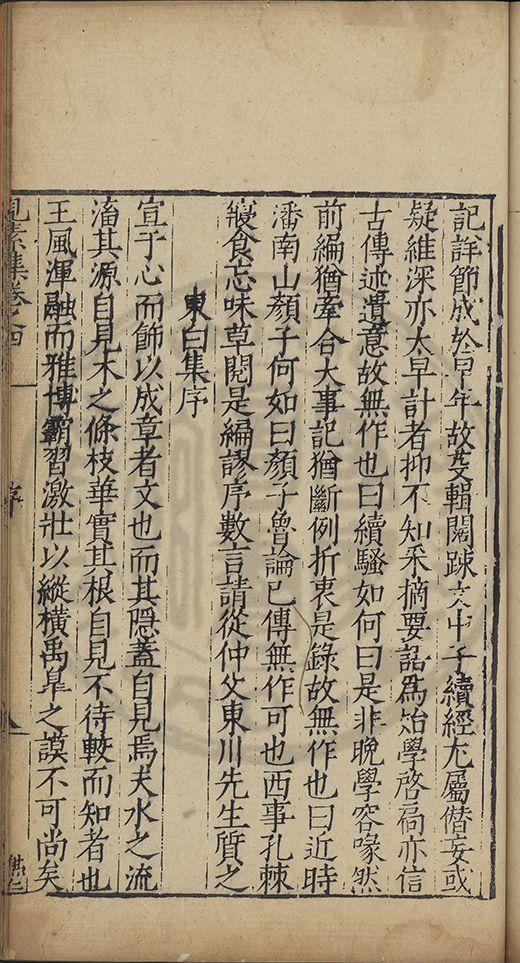 記詳節成於早年故芟輯闊踈文中子續經尤屬僣妄或
疑維深亦太早計者抑不知采摘要語為始學啓扃亦信
古傳述遺意故無作也曰續騷如何曰是非晚學容喙然
前編猶牽合大事記猶斷例折衷是錄故無作也曰近時
潘南山顏子何如曰顏子魯論已傳無作可也西事孔棘
寢食忘味草閱是編謬序數言請從仲父東川先生質之
東白集序
宣于心而飾以成章者文也而其隱蓋自見焉夫水之流
湝其源自見木之條枝華實其根自見不待較而知者也
王風渾融而雅博霸習激壯以縱橫禹臯之謨不可尚矣
見素集卷之四
序
八